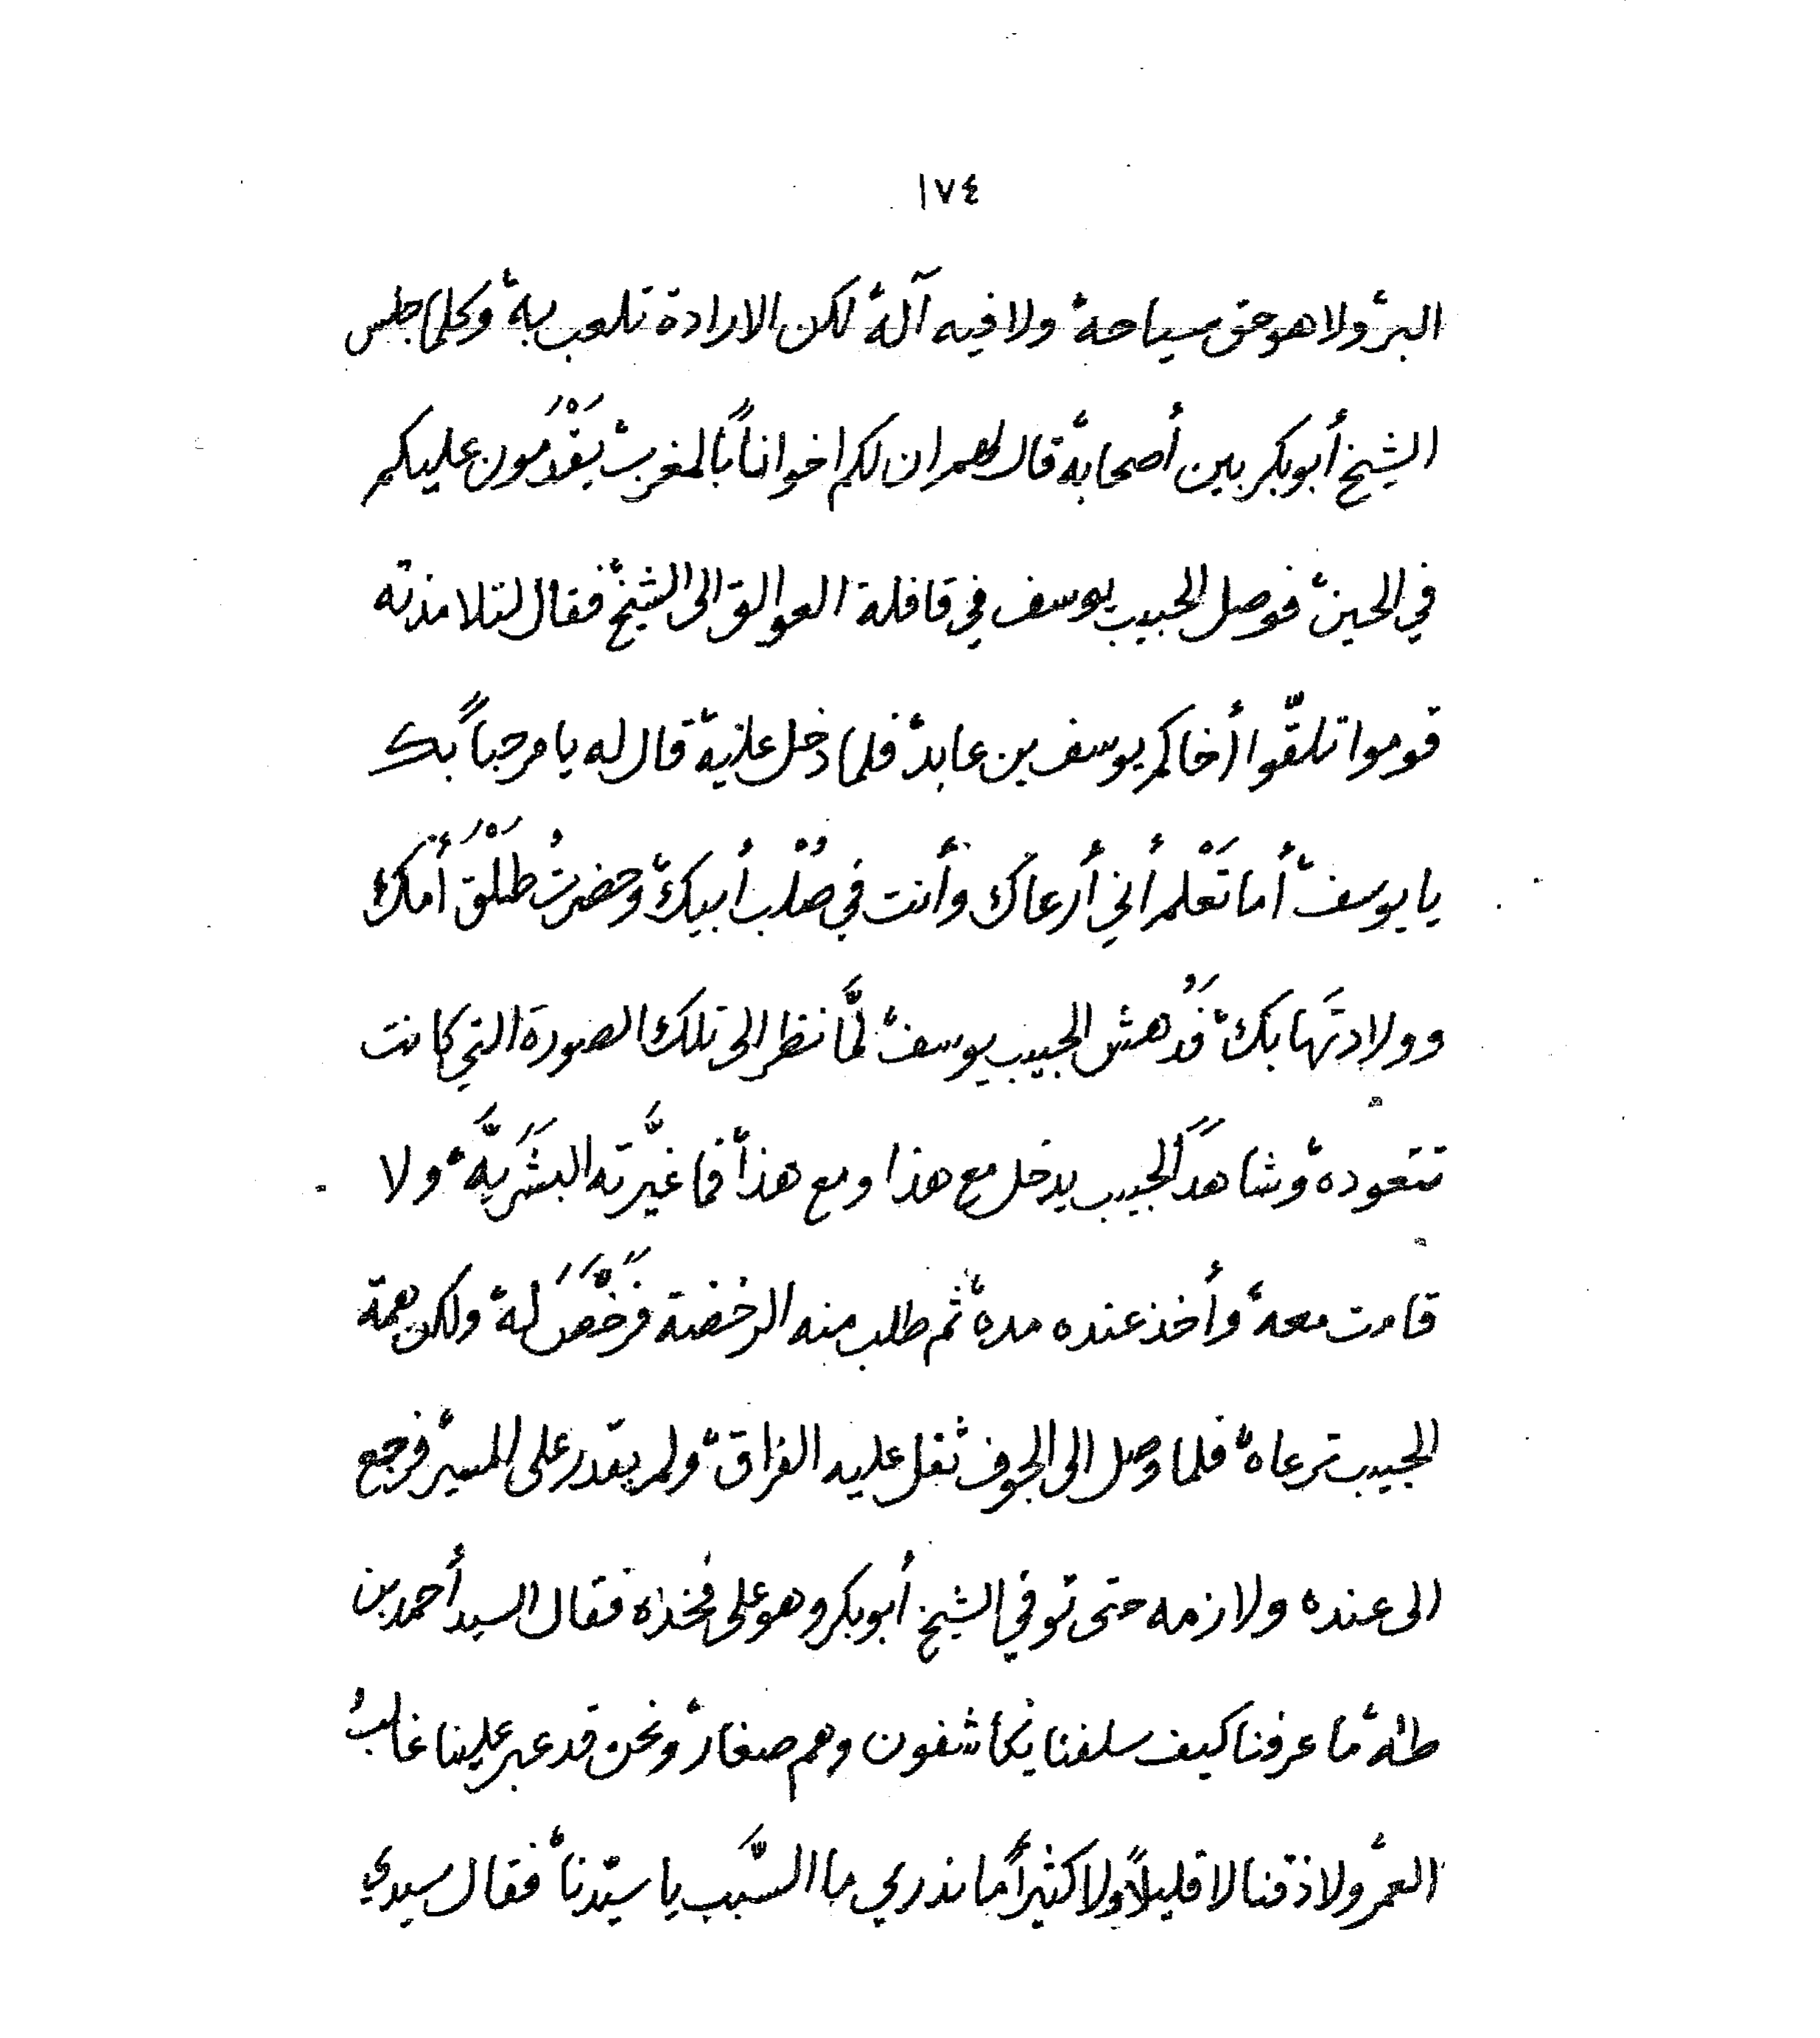 ١٧٤
البرّ ولا هو حق سياحة ولا فيه آلة لكن الارادة تلعب به وكلما جلس
الشيخ أبوبكر بين أصحابه قال لهم ان لكم اخواناً بالمغرب يَقْدَمون عليكم
في الحين فوصل الحبيب يوسف في قافلة العوالق الى الشيخ فقال لتلامذته
قوموا تلقّوا أخاكم يوسف بن عابد فلما دخل عليه قال له يا مرحباً بك
يا يوسف أما تَعْلم أني أرعاك وأنت في صُلْب أبيك وحضرتُ طَلْقَ أُمّك
وولادتَها بك فَدُهش الحبيب يوسف لمَّا نظر الى تلك الصورة التي كانت
تتعوده وشاهدَ الحبيب يدخل مع هذا ومع هذا فما غيَّرته البشَريَّة ولا
قامت معه وأخذ عنده مدة ثم طلب منه الرخصة فرَخَّصَ له ولكن همة
الحبيب ترعاه فلما وصل الى الجوف ثقل عليه الفراق ولم يقدر على المسير فرجع
الى عنده ولازمه حتى توفي الشيخ أبوبكر وهو على فخذه فقال السيد أحمد بن
طه ما عرفنا كيف سلفنا يكاشفون وهم صغار ونحن قد عبر علينا غالبُ
العمر ولا ذقنا لا قليلاً ولا كثيراً ما ندري ما السَّبب يا سيّدنا فقال سيدي